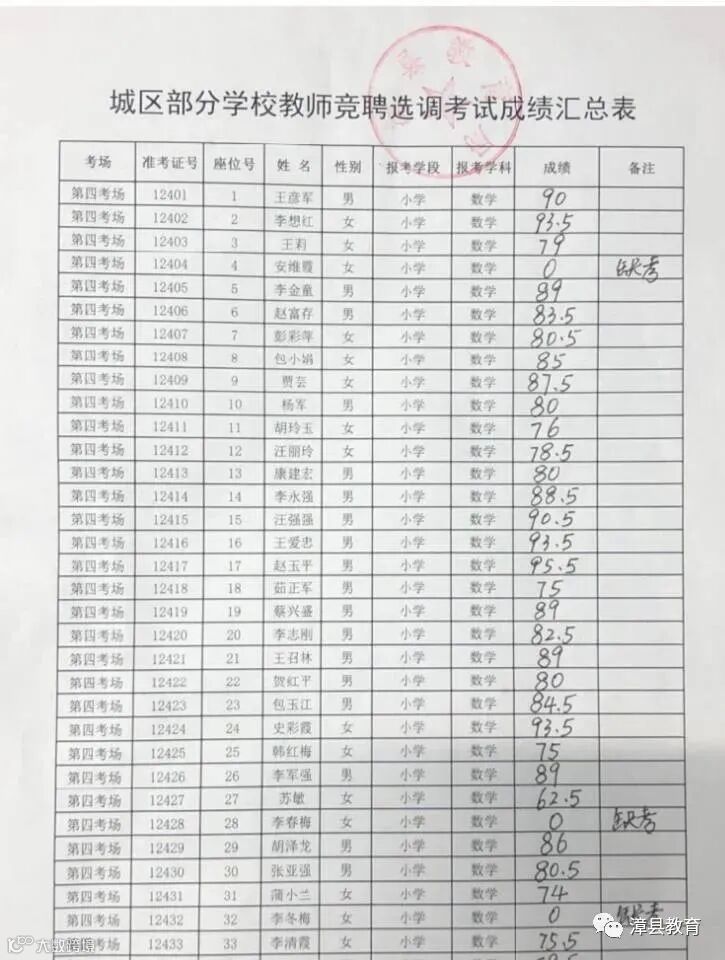 城区部分学校教师竞聘选调考试成绩汇总表
考场 准考证号 座位号 姓名 性别 报考学段 报考学科 成绩 备注
第四考场 12401 1 王彦军 男 小学 数学 90
第四考场 12402 2 李想红 女 小学 数学 93.5
第四考场 12403 3 王莉 女 小学 数学 79
第四考场 12404 4 安维霞 女 小学 数学 0 缺考
第四考场 12405 5 李金童 男 小学 数学 89
第四考场 12406 6 赵富存 男 小学 数学 83.5
第四考场 12407 7 彭彩萍 女 小学 数学 80.5
第四考场 12408 8 包小娟 女 小学 数学 85
第四考场 12409 9 贾芸 女 小学 数学 87.5
第四考场 12410 10 杨军 男 小学 数学 80
第四考场 12411 11 胡玲玉 女 小学 数学 76
第四考场 12412 12 汪丽玲 女 小学 数学 78.5
第四考场 12413 13 康建宏 男 小学 数学 80
第四考场 12414 14 李永强 男 小学 数学 88.5
第四考场 12415 15 汪强强 男 小学 数学 90.5
第四考场 12416 16 王爱忠 男 小学 数学 93.5
第四考场 12417 17 赵玉平 男 小学 数学 95.5
第四考场 12418 18 茹正军 男 小学 数学 75
第四考场 12419 19 蔡兴盛 男 小学 数学 89
第四考场 12420 20 李志刚 男 小学 数学 82.5
第四考场 12421 21 王召林 男 小学 数学 89
第四考场 12422 22 贺红平 男 小学 数学 80
第四考场 12423 23 包玉江 男 小学 数学 84.5
第四考场 12424 24 史彩霞 女 小学 数学 93.5
第四考场 12425 25 韩红梅 女 小学 数学 75
第四考场 12426 26 李军强 男 小学 数学 89
第四考场 12427 27 苏敏 女 小学 数学 62.5
第四考场 12428 28 李春梅 女 小学 数学 0 缺考
第四考场 12429 29 胡泽龙 男 小学 数学 86
第四考场 12430 30 张亚强 男 小学 数学 80.5
第四考场 12431 31 蒲小兰 女 小学 数学 74
第四考场 12432 32 李冬梅 女 小学 数学 0 缺考
第四考场 12433 33 李清霞 女 小学 数学 75.5
漳县教育
大数跨境